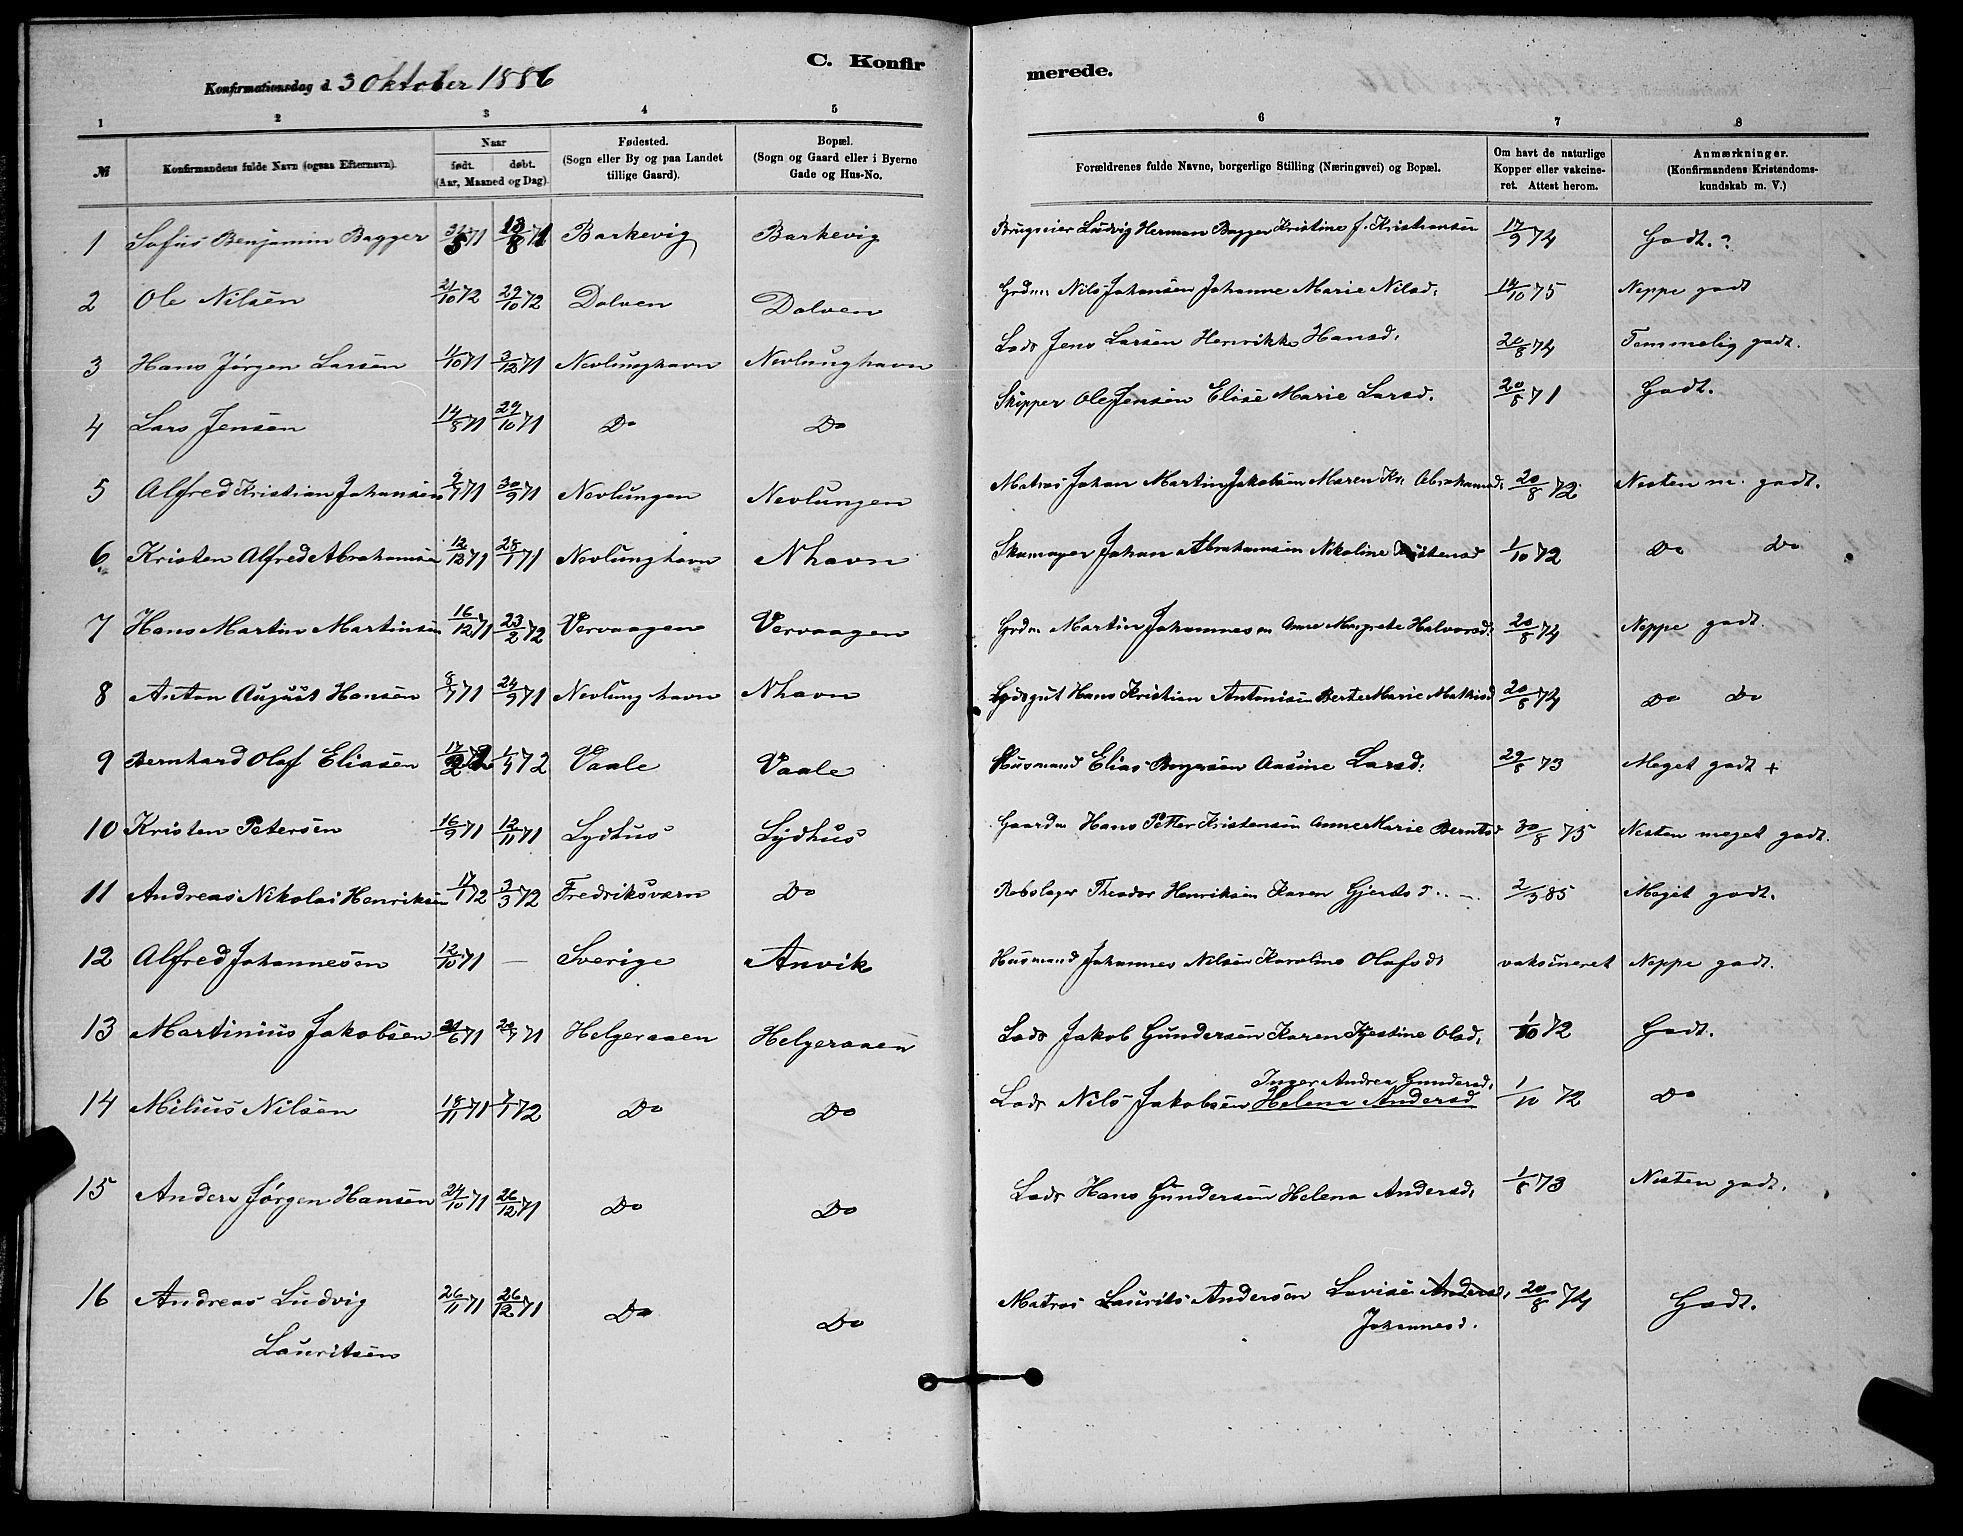 C. Konfirmerede.
Konfirmationsdag d. 3 Oktober 1886
1 2 3 4 5 6 7 8
№ Konfirmandens fulde Navn (ogsaa Efternavn). Naar født. døbt. (Aar, Maaned og Dag). Fødested. (Sogn eller By og paa Landet tillige Gaard). Bopæl. (Sogn og Gaard eller i Byerne Gade og Hus-No. Forældrenes fulde Navne, borgerlige Stilling (Næringsvei) og Bopæl. Om havt de naturlige Kopper eller vakcineret. Attest herom. Anmærkninger. (Konfirmandens Kristendomskundskab m. V.)
1 Sofus Benjamin Bagger 31/5 71 13/8 71 Barkevig Barkevig Brugseier Ludvig Herman Bagger Kristine f. Kristiansen 17/9 74 Godt.?
2 Ole Nilsen 21/10 72 29/10 72 Dolven Dolven Grdm: Nils Johansen Johanne Marie Nilsd. 14/10 75 Neppe godt
3 Hans Jørgen Larsen 1/10 71 3/12 71 Nevlunghavn Nevlunghavn Lods Jens Larsen Henrikke Hansd. 20/8 74 Temmelig godt.
4 Lars Jensen 14/8 71 29/10 71 Do Do Skipper Ole Jensen Elise Marie Larsd. 20/8 71 Godt.
5 Alfred Kristian Johansen 2/7 71 30/9 71 Nevlungen Nevlungen Matros Johan Martin Jakobsen Maren Kr. Abrahamsd. 20/8 72 Nesten m. godt.
6 Kristen Alfred Abrahamsen 12/12 71 28/1 71 Nevlunghavn Nhavn Skomager Johan Abrahamsen Nikoline Kristensd 1/10 72 Do Do
7 Hans Martin Martinsen 16/12 71 23/2 72 Vervaagen Vervaagen Grdm Martin Johannesen Anne Margrete Halvorsd. 20/8 74 Neppe godt.
8 Anton August Hansen 8/7 71 24/9 71 Nevlunghavn Nhavn Lodsgut Hans Kristian Antonisen Berte Marie Mathisd 20/8 74 Do Do
9 Bernhard Olaf Eliasen 17/2 72 1/4 72 Vaale Vaale Husmand Elias Borgersen Aasine Larsd: 29/8 73 Meget godt +
10 Kristen Petersen 16/9 71 12/11 71 Lydhus Lydhus Gaardm Hans Petter Kristensen Anne Marie Berntsd 30/8 75 Nesten meget godt.
11 Andreas Nikolai Henriksen 17/1 72 3/3 72 Fredriksværn Do Rebslager Theodor Henriksen Karen Gjertsd. 2/3 85 Meget godt.
12 Alfred Johannesen 12/10 71 — Sverige Anvik Husmand Johannes Nilsen Karoline Olofsdt vaksineret Neppe godt.
13 Martinius Jakobsen 21/6 71 20/7 71 Helgeraaen Helgeraaen Lods Jakob Gundersen Karen Kjestine Olsd. 1/10 72 Godt.
Inger Andrea Gundersd.
14 Milius Nilsen 18/11 71 7/1 72 Do Do Lods Nils Jakobsen Helena Andersd 1/10 72 Do
15 Anders Jørgen Hansen 24/10 71 26/12 71 Do Do Lods Hans Gundersen Helena Andersd. 1/8 73 Nesten godt.
16 Andreas Ludvig 26/11 71 26/12 71 Do Do Matros Laurits Andersen Lovise Andersd. 20/8 74 Godt.
Lauritsen Johannesd.